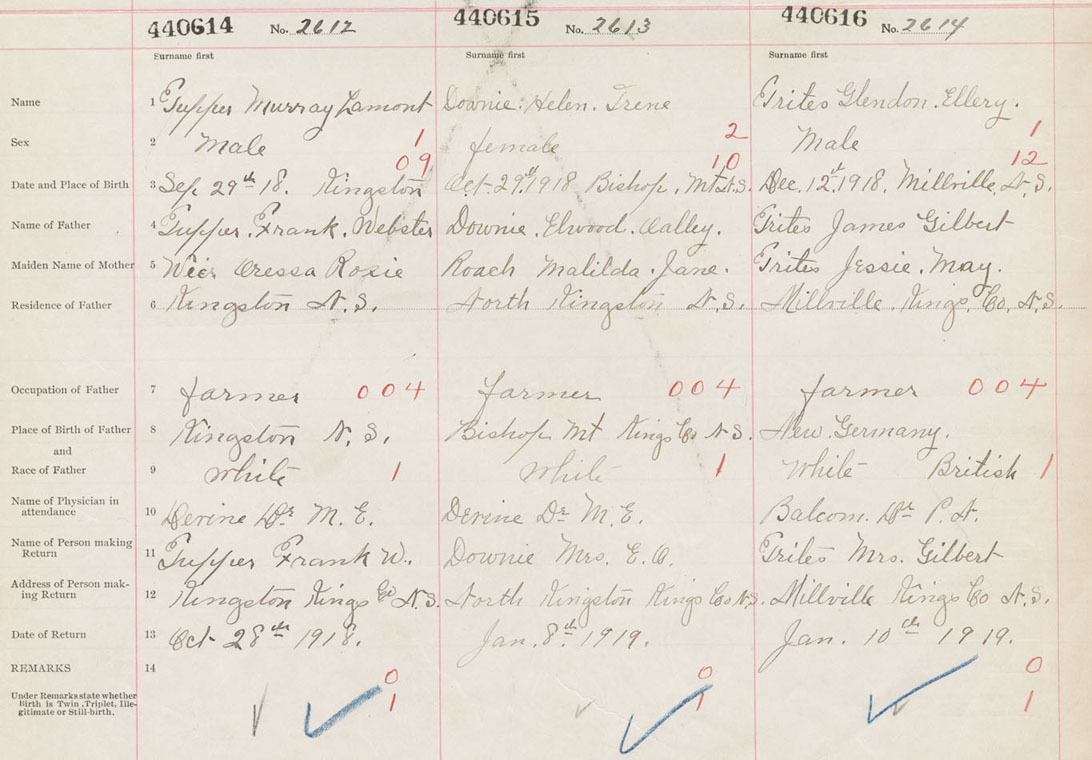 440614 No. 2612 440615 No. 2613 440616 No. 2614
Surname first Surname first Surname first
Name 1 Tupper Murray Lamont Downie. Helen. Irene Trites Glendon. Ellery.
Sex 2 Male 1 female 2 Male 1
09 10 12
Date and Place of Birth 3 Sep 29th 18. Kingston Oct. 29th 1918 Bishop, Mt N.S. Dec. 12th 1918, Millville, N.S.
Name of Father 4 Tupper. Frank. Webster Downie. Elwood. Trites James Gilbert
Maiden Name of Mother 5 Weir Oressa Rosie Roach Matilda. Jane. Trites Jessie. May.
Residence of Father 6 Kingston N.S. North Kingston N.S. Millville. Kings, Co, N.S.
Occupation of Father 7 farmer 004 farmer 004 farmer 004
Place of Birth of Father 8 Kingston N.S. Bishop Mt Kings Co N.S. New. Germany.
and
Race of Father 9 White 1 White 1 White British 1
Name of Physician in
attendance 10 Devine Dr M.E. Devine Dr M.E. Balcom. Dr P. N.
Name of Person making
Return 11 Tupper Frank W. Downie Mrs. E. O. Trites Mrs. Gilbert
Address of Person mak-
ing Return 12 Kingston Kings Co N.S. North Kingston Kings Co N.S. Millville Kings Co N.S.
Date of Return 13 Oct 28th 1918. Jan. 8th 1919. Jan. 10th 1919.
REMARKS 14 0 0 0
Under Remarks state whether
Birth is Twin, Triplet, Ille-
gitimate or Still-birth. 1 1 1